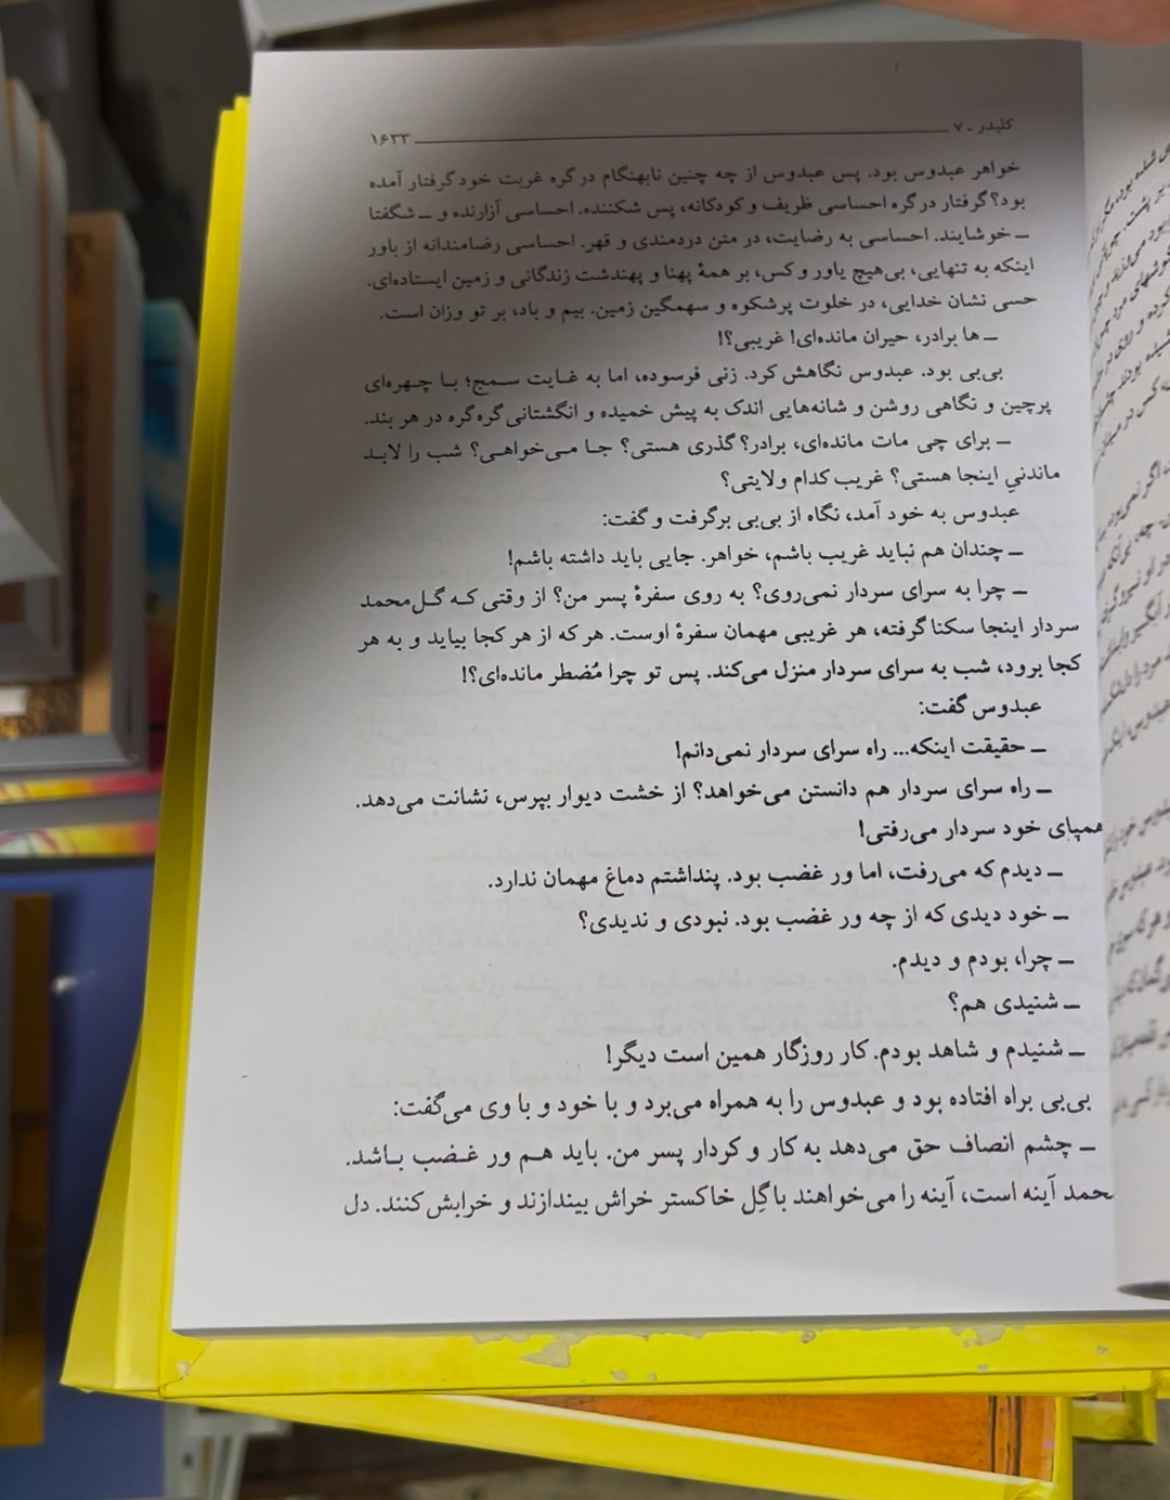 کلیدر ـ ۷ ۱۶۳۳
خواهر عبدوس بود. پس عبدوس از چه چنین نابهنگام در گره غربت خود گرفتار آمده
بود؟ گرفتار در گره احساسی ظریف و کودکانه، پس شکننده. احساسی آزارنده و ــ شگفتا
ــ خوشایند. احساسی به رضایت، در متن دردمندی و قهر. احساسی رضامندانه از باور
اینکه به تنهایی، بی‌هیچ یاور و کس، بر همهٔ پهنا و پهندشت زندگانی و زمین ایستاده‌ای.
حسی نشان خدایی، در خلوت پرشکوه و سهمگین زمین. بیم و باد، بر تو وزان است.
ــ ها برادر، حیران مانده‌ای! غریبی؟!
بی‌بی بود. عبدوس نگاهش کرد. زنی فرسوده، اما به غایت سمج؛ با چهره‌ای
پرچین و نگاهی روشن و شانه‌هایی اندک به پیش خمیده و انگشتانی گره گره در هر بند.
ــ برای چی مات مانده‌ای، برادر؟ گذری هستی؟ جا می‌خواهی؟ شب را لابد
ماندنیِ اینجا هستی؟ غریب کدام ولایتی؟
عبدوس به خود آمد، نگاه از بی‌بی برگرفت و گفت:
ــ چندان هم نباید غریب باشم، خواهر. جایی باید داشته باشم!
ــ چرا به سرای سردار نمی‌روی؟ به روی سفرهٔ پسر من؟ از وقتی که گل‌محمد
سردار اینجا سکنا گرفته، هر غریبی مهمان سفرهٔ اوست. هر که از هر کجا بیاید و به هر
کجا برود، شب به سرای سردار منزل می‌کند. پس تو چرا مُضطر مانده‌ای؟!
عبدوس گفت:
ــ حقیقت اینکه... راه سرای سردار نمی‌دانم!
ــ راه سرای سردار هم دانستن می‌خواهد؟ از خشت دیوار بپرس، نشانت می‌دهد.
همپای خود سردار می‌رفتی!
ــ دیدم که می‌رفت، اما ور غضب بود. پنداشتم دماغ مهمان ندارد.
ــ خود دیدی که از چه ور غضب بود. نبودی و ندیدی؟
ــ چرا، بودم و دیدم.
ــ شنیدی هم؟
ــ شنیدم و شاهد بودم. کار روزگار همین است دیگر!
بی‌بی براه افتاده بود و عبدوس را به همراه می‌برد و با خود و با وی می‌گفت:
ــ چشم انصاف حق می‌دهد به کار و کردار پسر من. باید هم ور غضب باشد.
محمد آینه است، آینه را می‌خواهند با گِل خاکستر خراش بیندازند و خرابش کنند. دل